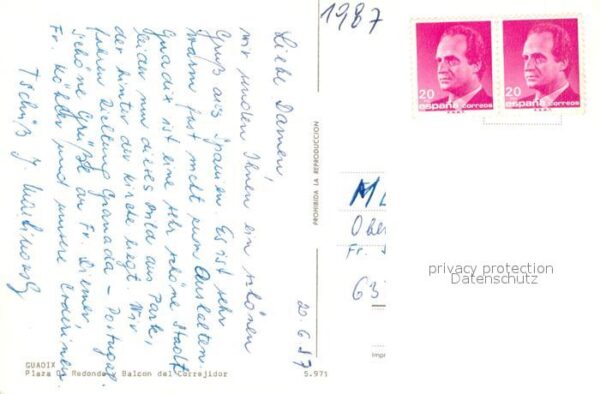 1987
20 20
españa correos españa correos
Liebe Damen!
wir senden Ihnen ein schönen
Gruß aus Spanien. Es ist sehr
warm fast nicht zum Aushalten.
Guadix ist eine sehr schöne Stadt
leider nur dieses Bild aus Park,
der hinter der Kirche liegt. Wir
fahren Richtung Granada - Portugal.
Schöne Grüße an Fr. Diemer,
Fr. Köhler und unsere
Tschüß J.
20. 6. 87
PROHIBIDA LA REPRODUCCION
Ober
Fr.
63
privacy protection
Datenschutz
Imp
GUADIX
Plaza Redonda y Balcon del Corregidor
S.971